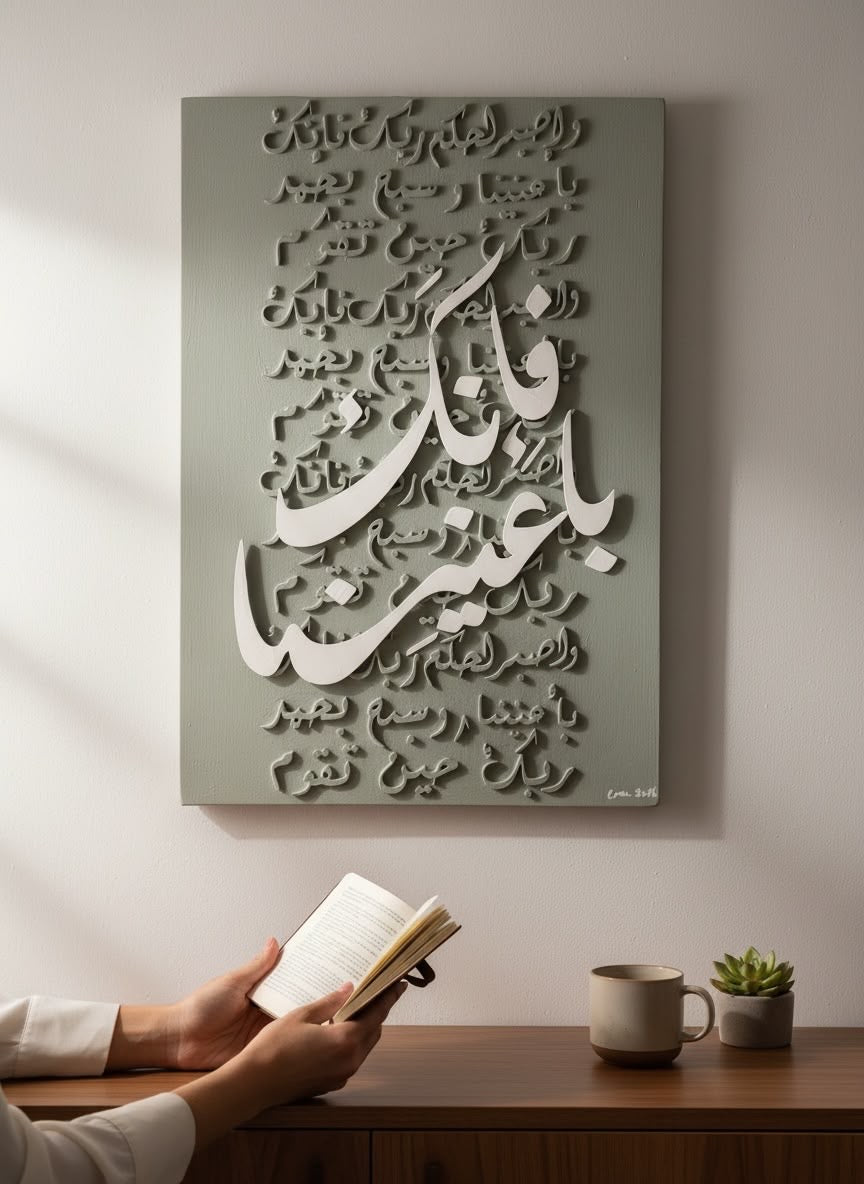 واصبر لحكم ربك فإنك
بأعيننا وسبح بحمد
ربك حين تقوم
واصبر لحكم ربك فإنك
بأعيننا وسبح بحمد
ربك حين تقوم
واصبر لحكم ربك فإنك
بأعيننا وسبح
ربك حين تقوم
واصبر لحكم ربك
بأعيننا وسبح بحمد
ربك حين تقوم
فإنك
بأعيننا